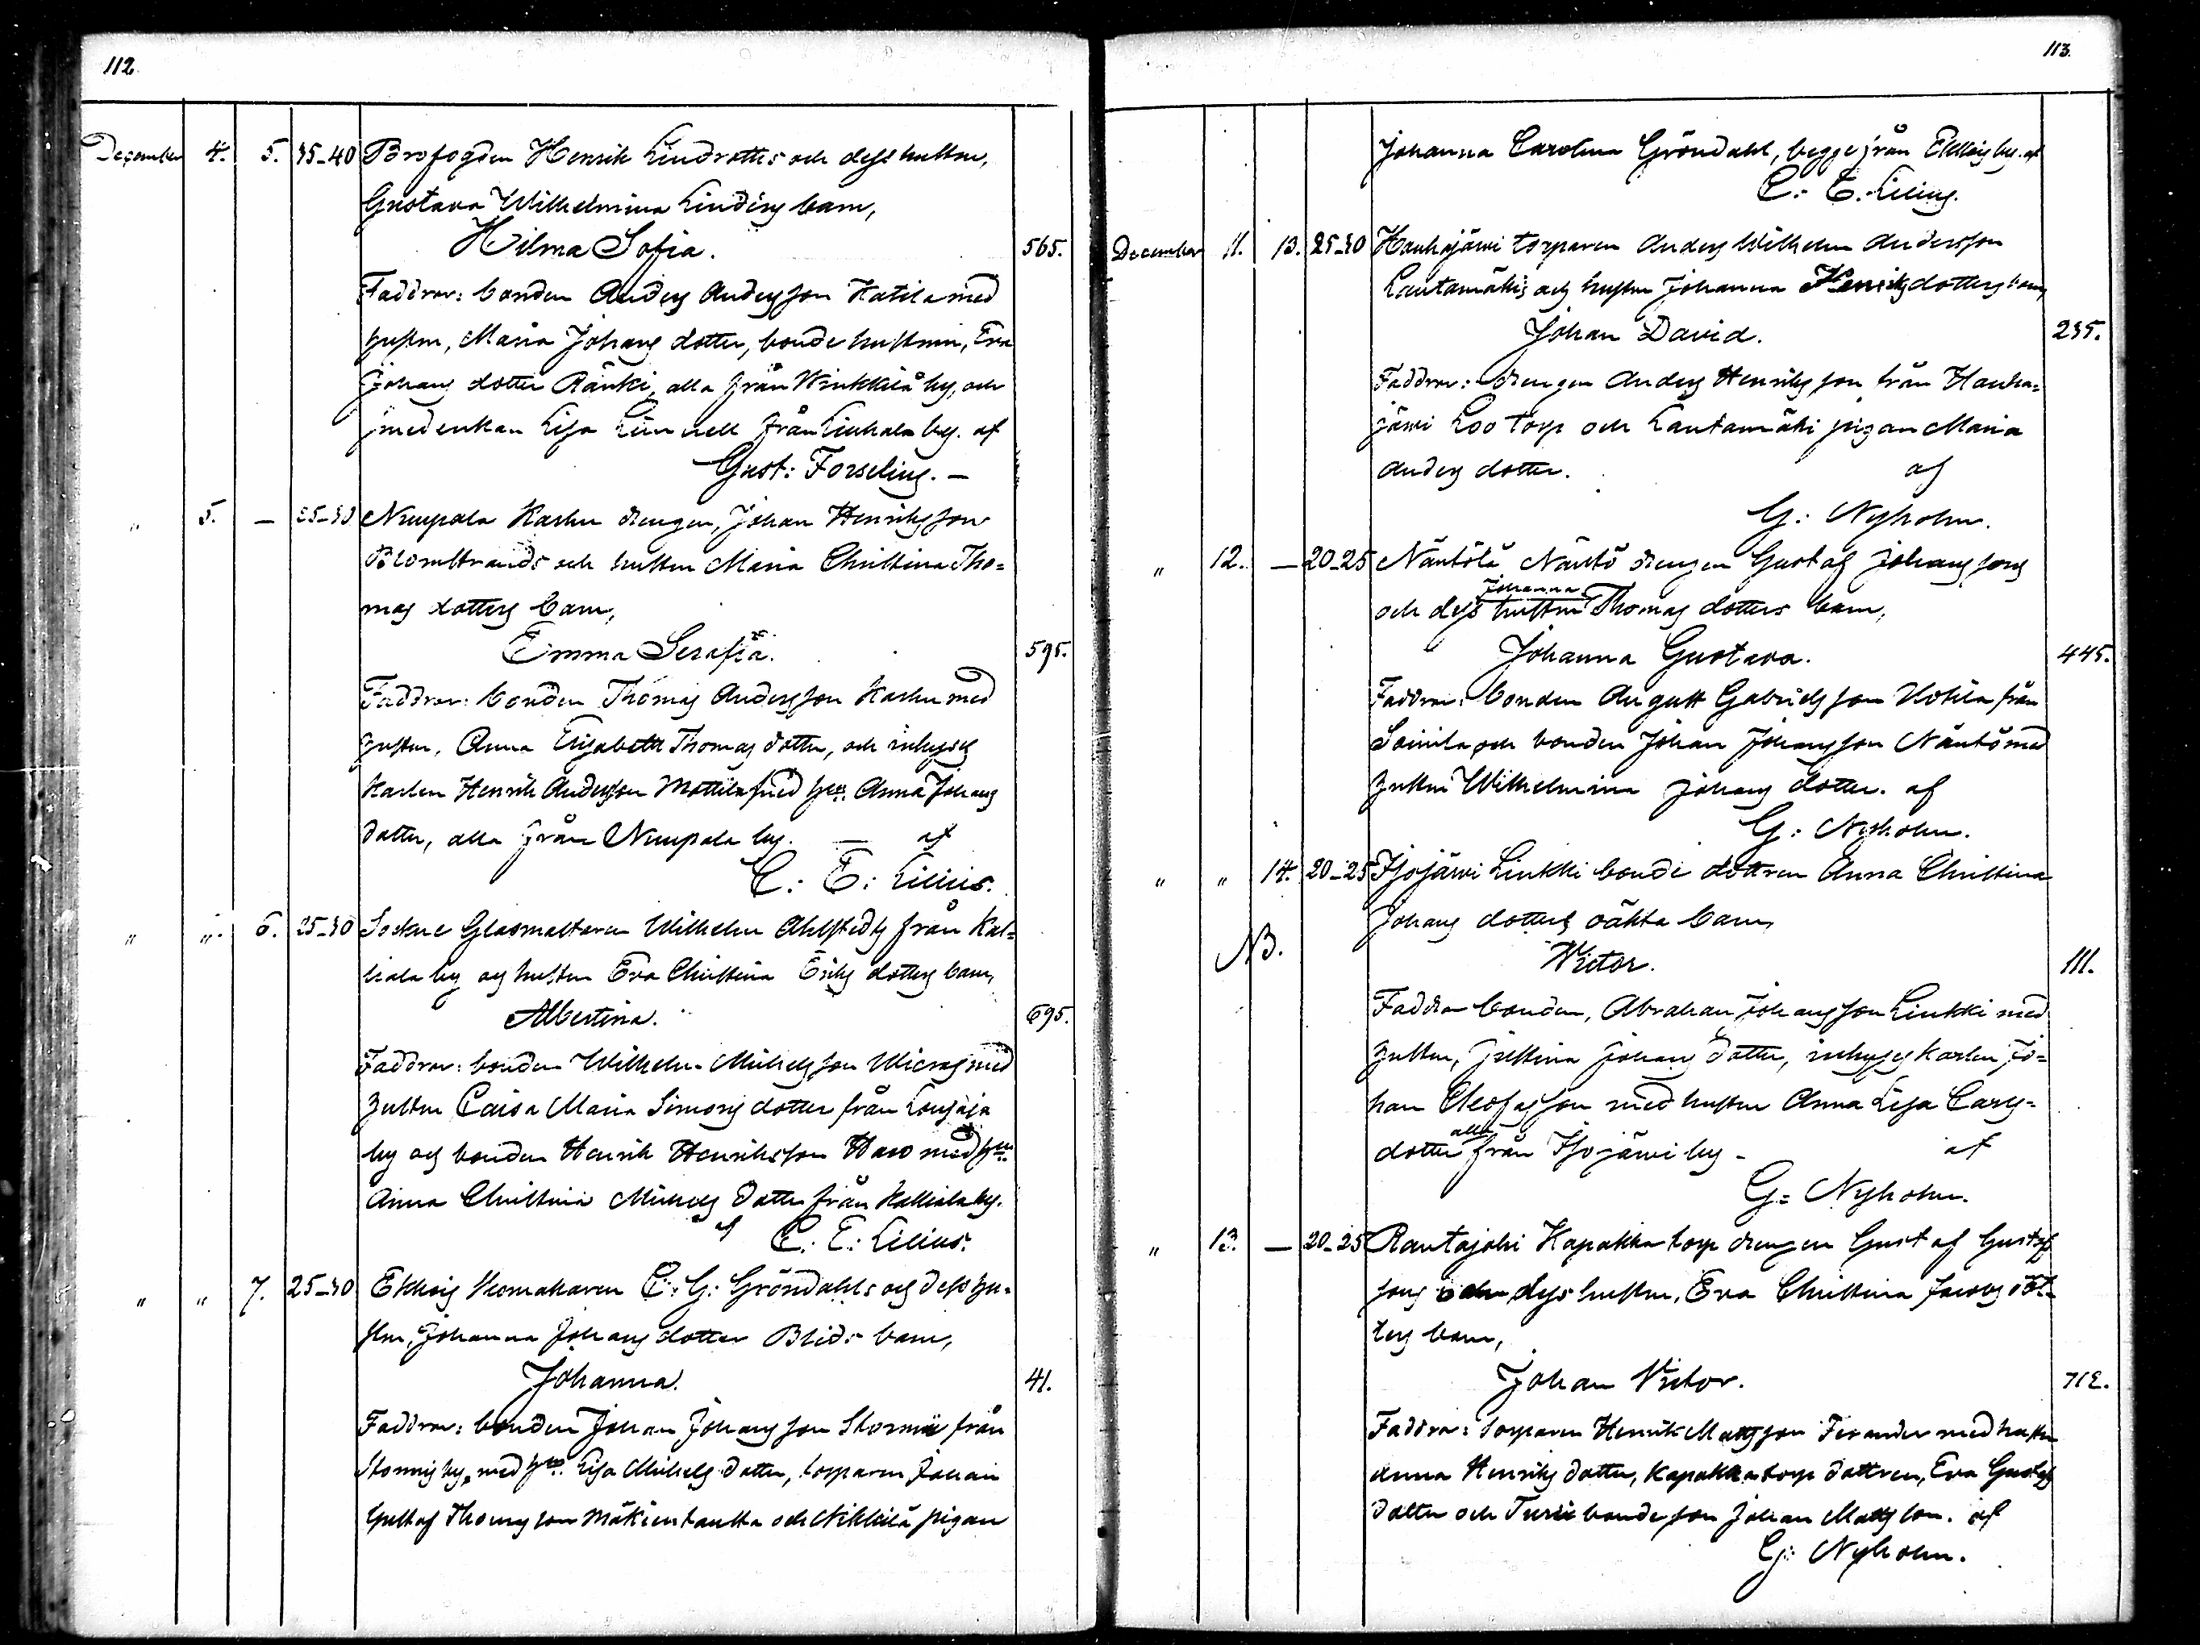 112
December 4. 5. 35-40 Brofogden Henrik Lindroths och dess hustru,
Gustava Wilhelmina Lindéns barn,
Hilma Sofia. 565.
Faddrar: bonden Anders Andersson Katila med
hustru, Maria Johans dotter, bonde hustrun, Eva
Johans dotter Ränki, alla från Winkkilä by, och
smedenkan Lisa Linnell från Liuhala by. af
Gust: Forselius. —
" 5. — 25-30 Nuupala Karhu drengen, Johan Henriksson
Blomstrands och hustru Maria Christina Tho=
mas dotters barn,
Emma Serafia. 595.
Faddrar: bonden Thomas Andersson Karhu med
hustru, Anna Elisabeth Thomas dotter, och inhyses
karlen Henrik Andersson Mattila med hu Anna Johans
dotter, alla från Nuupala by. — af
C: E: Lilius.
" " 6. 25-30 Sockne Glasmästaren Wilhelm Ahlstedts från Kal=
liala by och hustru Eva Christina Eriks dotters barn,
Albertina. 695.
Faddrar: bonden Wilhelm Michelsson med
hustru Caisa Maria Simons dotter från
by och bonden Henrik Henriksson Haro med hu
Anna Christina Michels dotter från Kalliala by.
af C: E: Lilius.
" " 7. 25-30 Ekkois Skomakaren C: G: Gröndahls och dess hu=
stru, Johanna Johans dotter Blids barn,
Johanna. 41.
Faddrar: bonden Johan Johansson Stormi från
Stormis by, med hu Lisa Michels dotter, torparen Johan
Gustaf Thomasson Mäkientausta och Nikkilä pigan
113.
Johanna Carolina Gröndahl, begge från Ekkois by. af
C: E. Lilius.
December 11. 13. 25-30 Houhajärvi torparen Anders Wilhelm Andersson
Lautamäkis och hustru Johanna Henriksdotters barn,
Johan David. 235.
Faddrar: drengen Anders Henriksson från Houha=
järvi Loo torp och Lautamäki pigan Maria
Anders dotter. af
G: Nyholm.
" 12. — 20-25 Näntölä Näntö drengen Gustaf Johanssons
och dess hustru Johanna Thomas dotters barn,
Johanna Gustava. 445.
Faddrar: bonden August Gabrielsson Hotila från
Soinila och bonden Johan Johansson Näntö med
hustru Wilhelmina Johans dotter. af
G: Nyholm.
" " 14. 20-25 Isojärvi Liukki bonde dottren Anna Christina
Johans dotters oäkta barn,
NB. Victor. 111.
Faddrar bonden, Abraham Johansson Liukki med
hustru, Justina Johans dotter, inhyses karlen Jo=
han Cleofasson med hustru Anna Lisa Carls=
dotter alla från Isojärvi by - af
G: Nyholm.
" 13. — 20-25 Rautajoki Kapakka torp drengen Gustaf Gustaf
sons och dess hustru, Eva Christina Jacobs dot=
ters barn,
Johan Victor. 712.
Faddrar: torparen Henrik Mattsson Ferander med hustru
Anna Henriks dotter, Kapakka torp dottren, Eva Gustafs
dotter och bondeson Johan Mattsson. af
G: Nyholm.